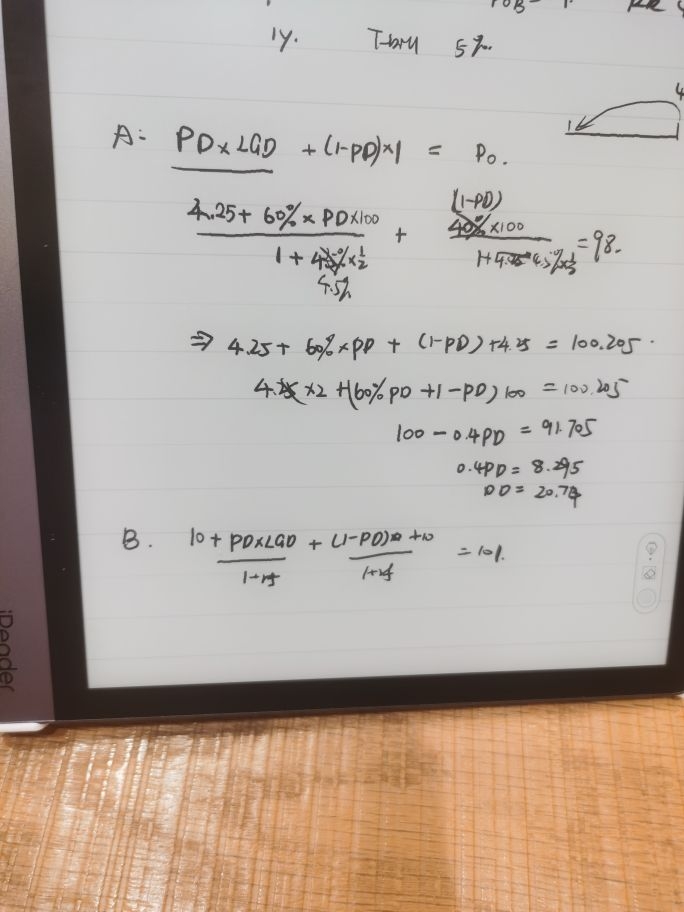 1y. T-bill 5%.
A: PD×LGD + (1-PD)×1 = P0.
4.25 + 60% × PD×100 + (1-PD) ×100 = 98.
1 + ×1/2 4.5% 1+ 4.5%×1/2
⇒ 4.25 + 60%×PD + (1-PD) +4.25 = 100.205.
×2 +(60%PD +1-PD)100 = 100.205
100 - 0.4PD = 91.705
0.4PD = 8.295
PD = 20.74
B. 10 + PD×LGD + (1-PD) +10 = 101.
1+rf 1+rf
iReader